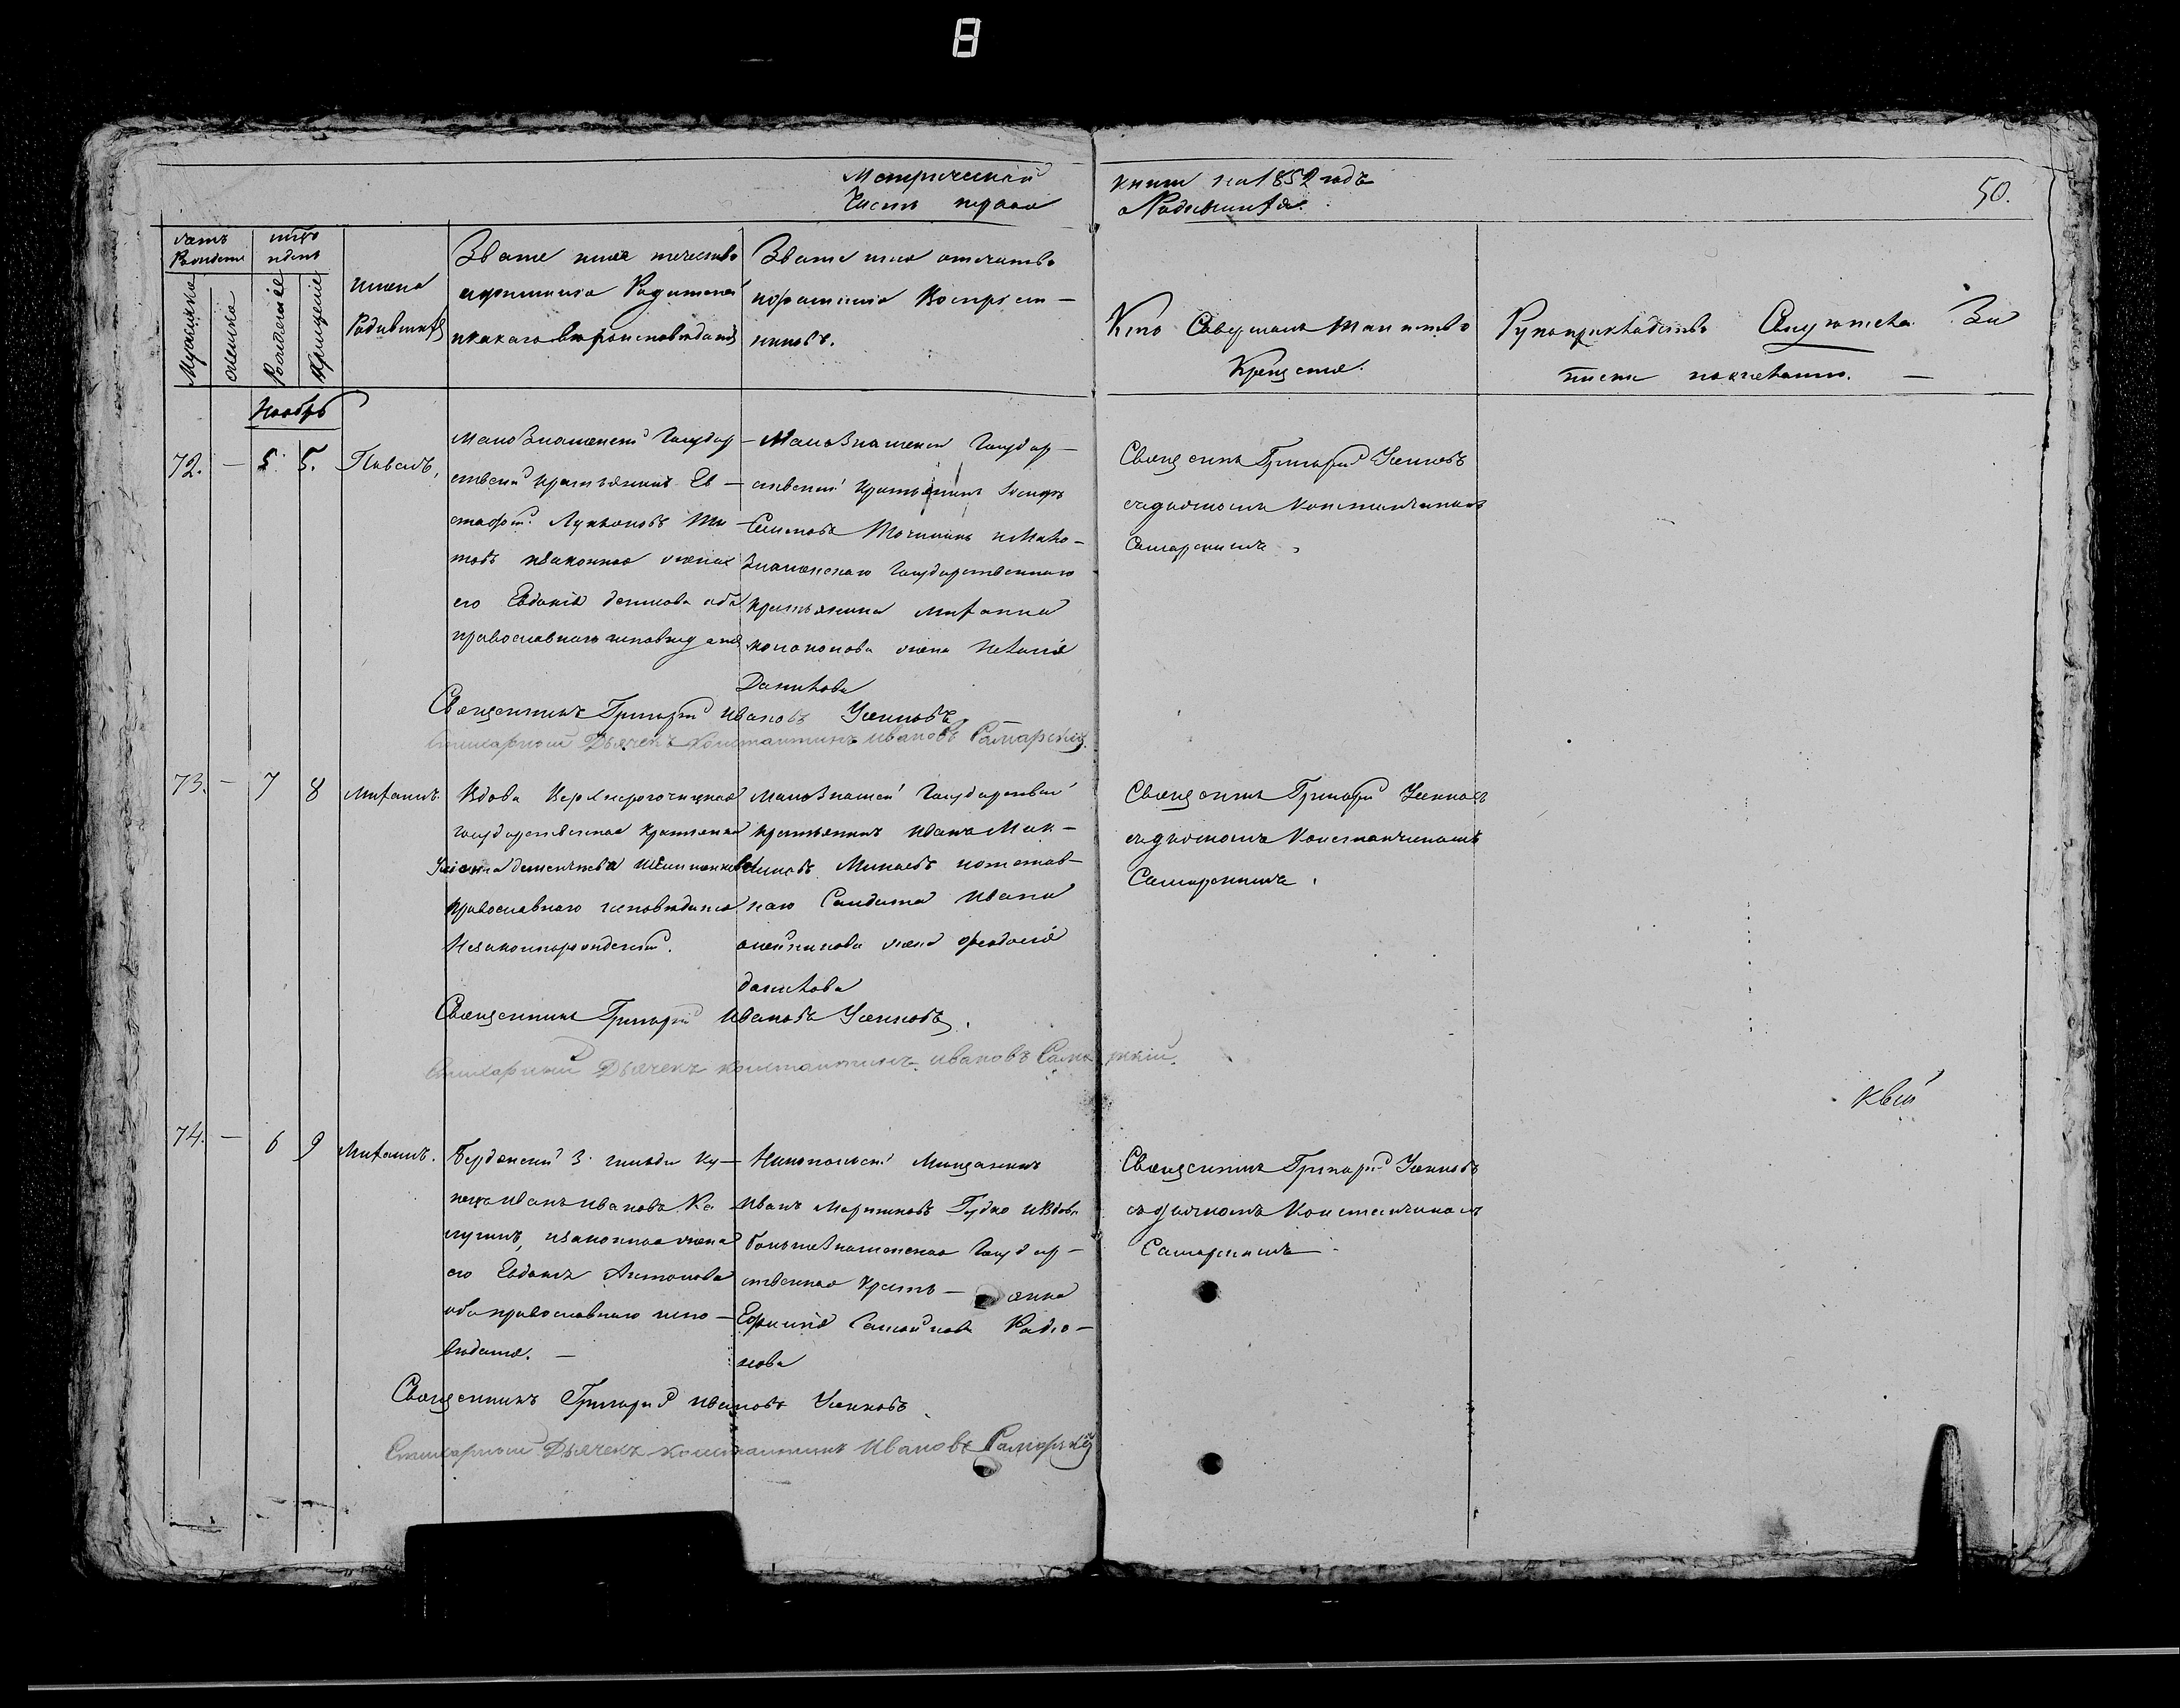 8
Метрической
книги на 1852 годъ
50.
Часть первая
о Родившихся.
Счетъ Рожденн
мцъ и день
Мужеска
Женска
Рожденіе
Крещеніе
имена
Родившихся
Званіе имя отечество
и фамилія Родителей
и какаго вероисповеданія
Званіе имя отечество
и фамилія Воспріем-
никовъ.
Кто Совершалъ таинство
Крещенія.
Рукоприкладство Свидетелей За
писи по желанію. —
Ноябрь
72. — 5. 5. Павелъ,
Малознаменскій Государ-
ственній крестьянинъ Ев-
стафій Лукьяновъ Ти-
товъ и законная жена
его Евдокія денисова оба
православнаго исповеданія
Малознаменскій Государ-
ственній крестьянинъ Іосифъ
Семеновъ и Мало-
знаменскаго Государственнаго
крестьянина Михаила
жена Наталія
Данилова
Священникъ Григорій Усенковъ
съ дьячкомъ Константиномъ
Самарскимъ
Священникъ Григорій Ивановъ Усенковъ
Стихарный Дьячекъ Константинъ Ивановъ Самарскій.
73. — 7 8 Михаилъ.
Вдова Верхнерогочицкая
Государственная крестьянка
Иуліанна
православнаго исповеданія
Незаконнорожденный.
Малознаменскій Государственный
крестьянинъ Иванъ Мак-
симовъ Минаевъ и отстав-
наго Солдата Ивана
Олейникова жена Феодосія
данилова
Священникъ Григорій Усенковъ
съ дьячкомъ Константиномъ
Самарскимъ.
Священникъ Григорій Ивановъ Усенковъ.
Стихарный Дьячекъ Константинъ Ивановъ Самарскій.
74. — 6 9 Михаилъ.
Бердянскій 3. гильдіи Ку-
пецъ Иванъ Ивановъ Ка-
и законная жена
его Евдокія Антонова
оба православнаго испо-
веданія. —
Никопольскій Мещанинъ
Иванъ Гудко и Вдова
большезнаменская Государ-
ственная крестьянка
Ефимія Самойлова Радіо-
нова
Священникъ Григорій Усенковъ
съ дьячкомъ Константиномъ
Самарскимъ
Священникъ Григорій Ивановъ Усенковъ
Стихарный Дьячекъ Константинъ Ивановъ Самарскій